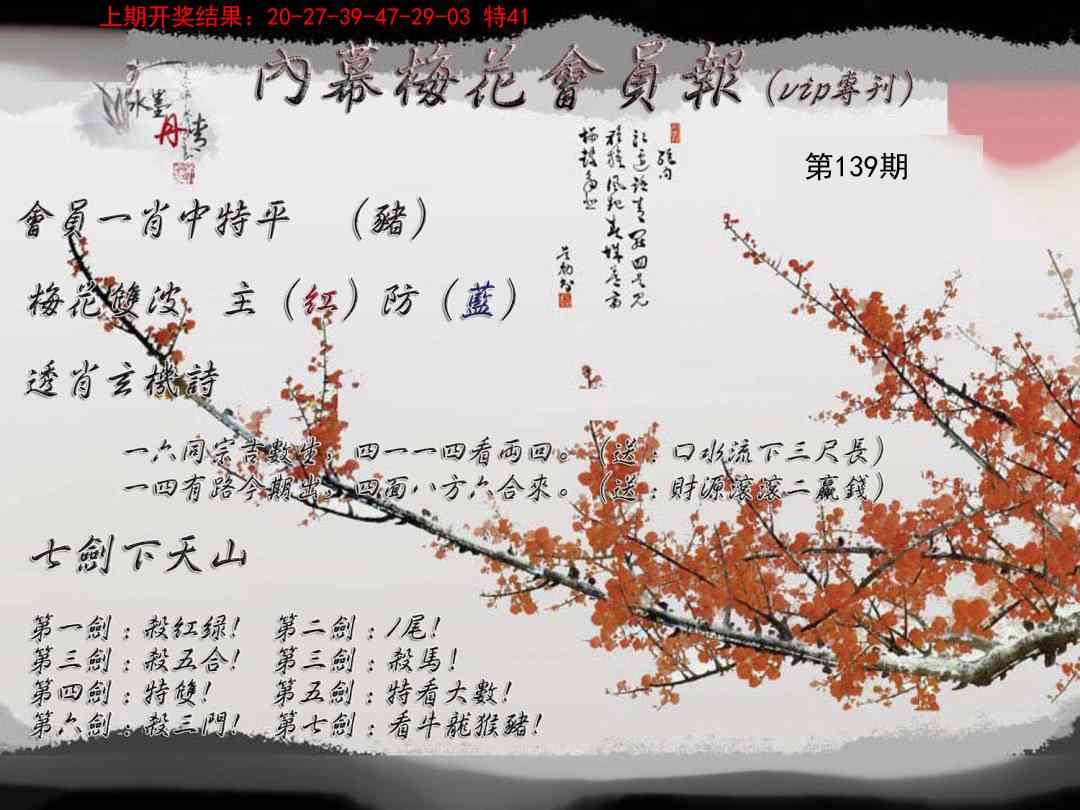 上期开奖结果：20-27-39-47-29-03 特41
內幕梅花會員報（vip專刊）
水墨
丹青
第139期
會員一肖中特平 （豬）
梅花雙波 主（紅）防（藍）
透肖玄機詩
一六同宗吉數生，四一一四看兩回。（送：口水流下三尺長）
一四有路今期出，四面八方六合來。（送：財源滾滾二贏錢）
七劍下天山
第一劍：殺紅绿！ 第二劍：1尾！
第三劍：殺五合！ 第三劍：殺馬！
第四劍：特雙！ 第五劍：特看大數！
第六劍：殺三門！ 第七劍：看牛龍猴豬！